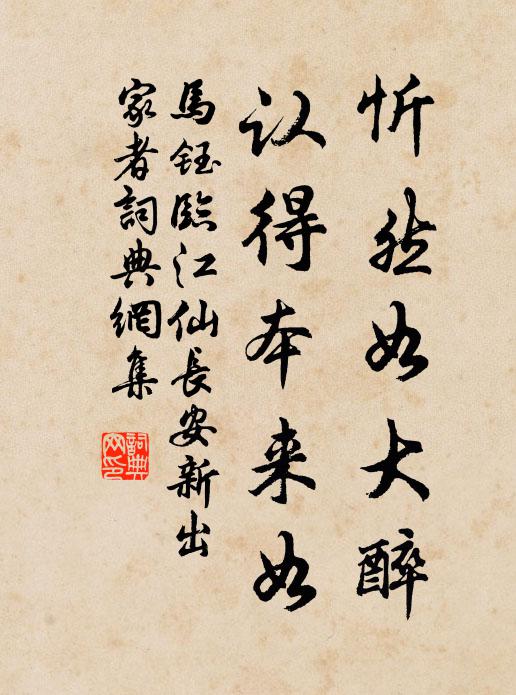 忻然如大醉
认得本来如
馬鈺臨江仙長安新出
家者詞典網集
詞典網印